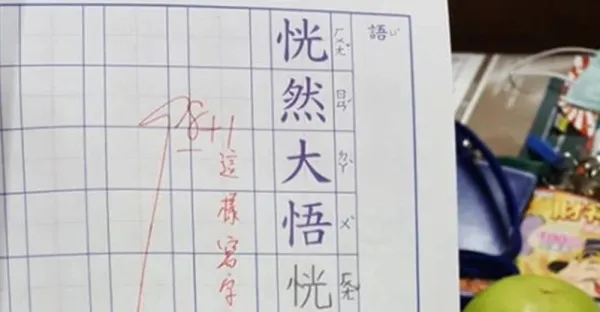 語
恍然大悟恍
ㄏㄨㄤˇ ㄖㄢˊ ㄉㄚˋ ㄨˋ ㄏㄨㄤˇ
98+1
這樣寫字